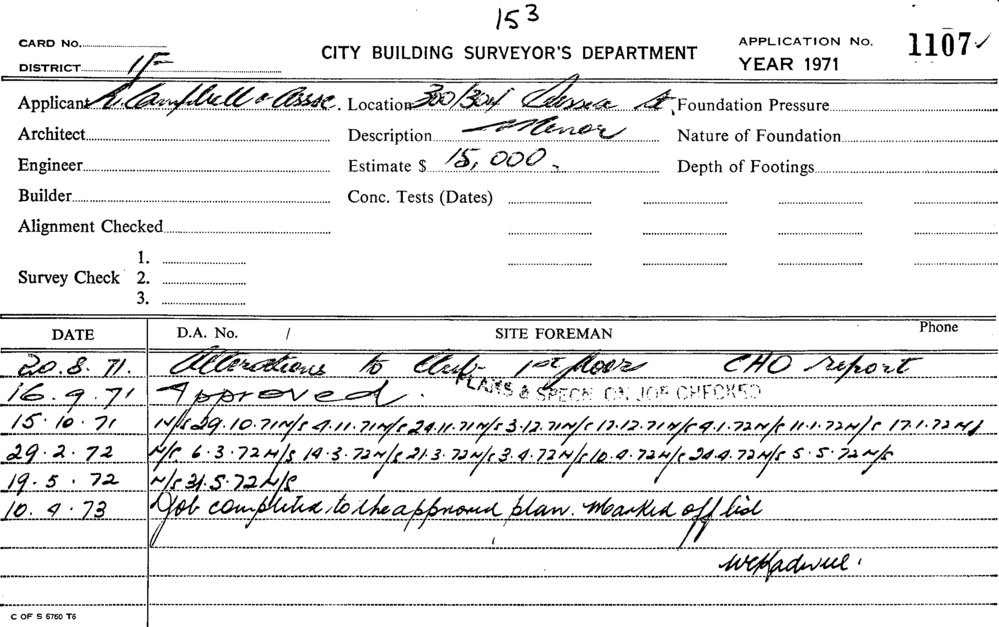 153
CARD No.
CITY BUILDING SURVEYOR'S DEPARTMENT
APPLICATION No. 1107 ✓
DISTRICT
YEAR 1971
Applicant Campbell & Assoc. Location 300/304 St. Foundation Pressure
Architect Description Minor Nature of Foundation
Engineer Estimate $ 15,000 Depth of Footings
Builder Conc. Tests (Dates)
Alignment Checked
1.
Survey Check 2.
3.
DATE D.A. No. / SITE FOREMAN Phone
20.8.71. Alterations to Club 1st floor CHO report
16.9.71 Approved. PLANS & SPECN ON JOB CHECKED
15.10.71 N/S 29.10.71 N/S 4.11.71 N/S 24.11.71 N/S 3.12.71 N/S 17.12.71 N/S 4.1.72 N/S 11.1.72 N/S 17.1.72 N/S
29.2.72 N/S 6.3.72 N/S 14.3.72 N/S 21.3.72 N/S 3.4.72 N/S 10.4.72 N/S 24.4.72 N/S 5.5.72 N/S
19.5.72 N/S 31.5.72 N/S
10.4.73 Job completed to the approved plan. Marked off list
C OF S 6760 T6